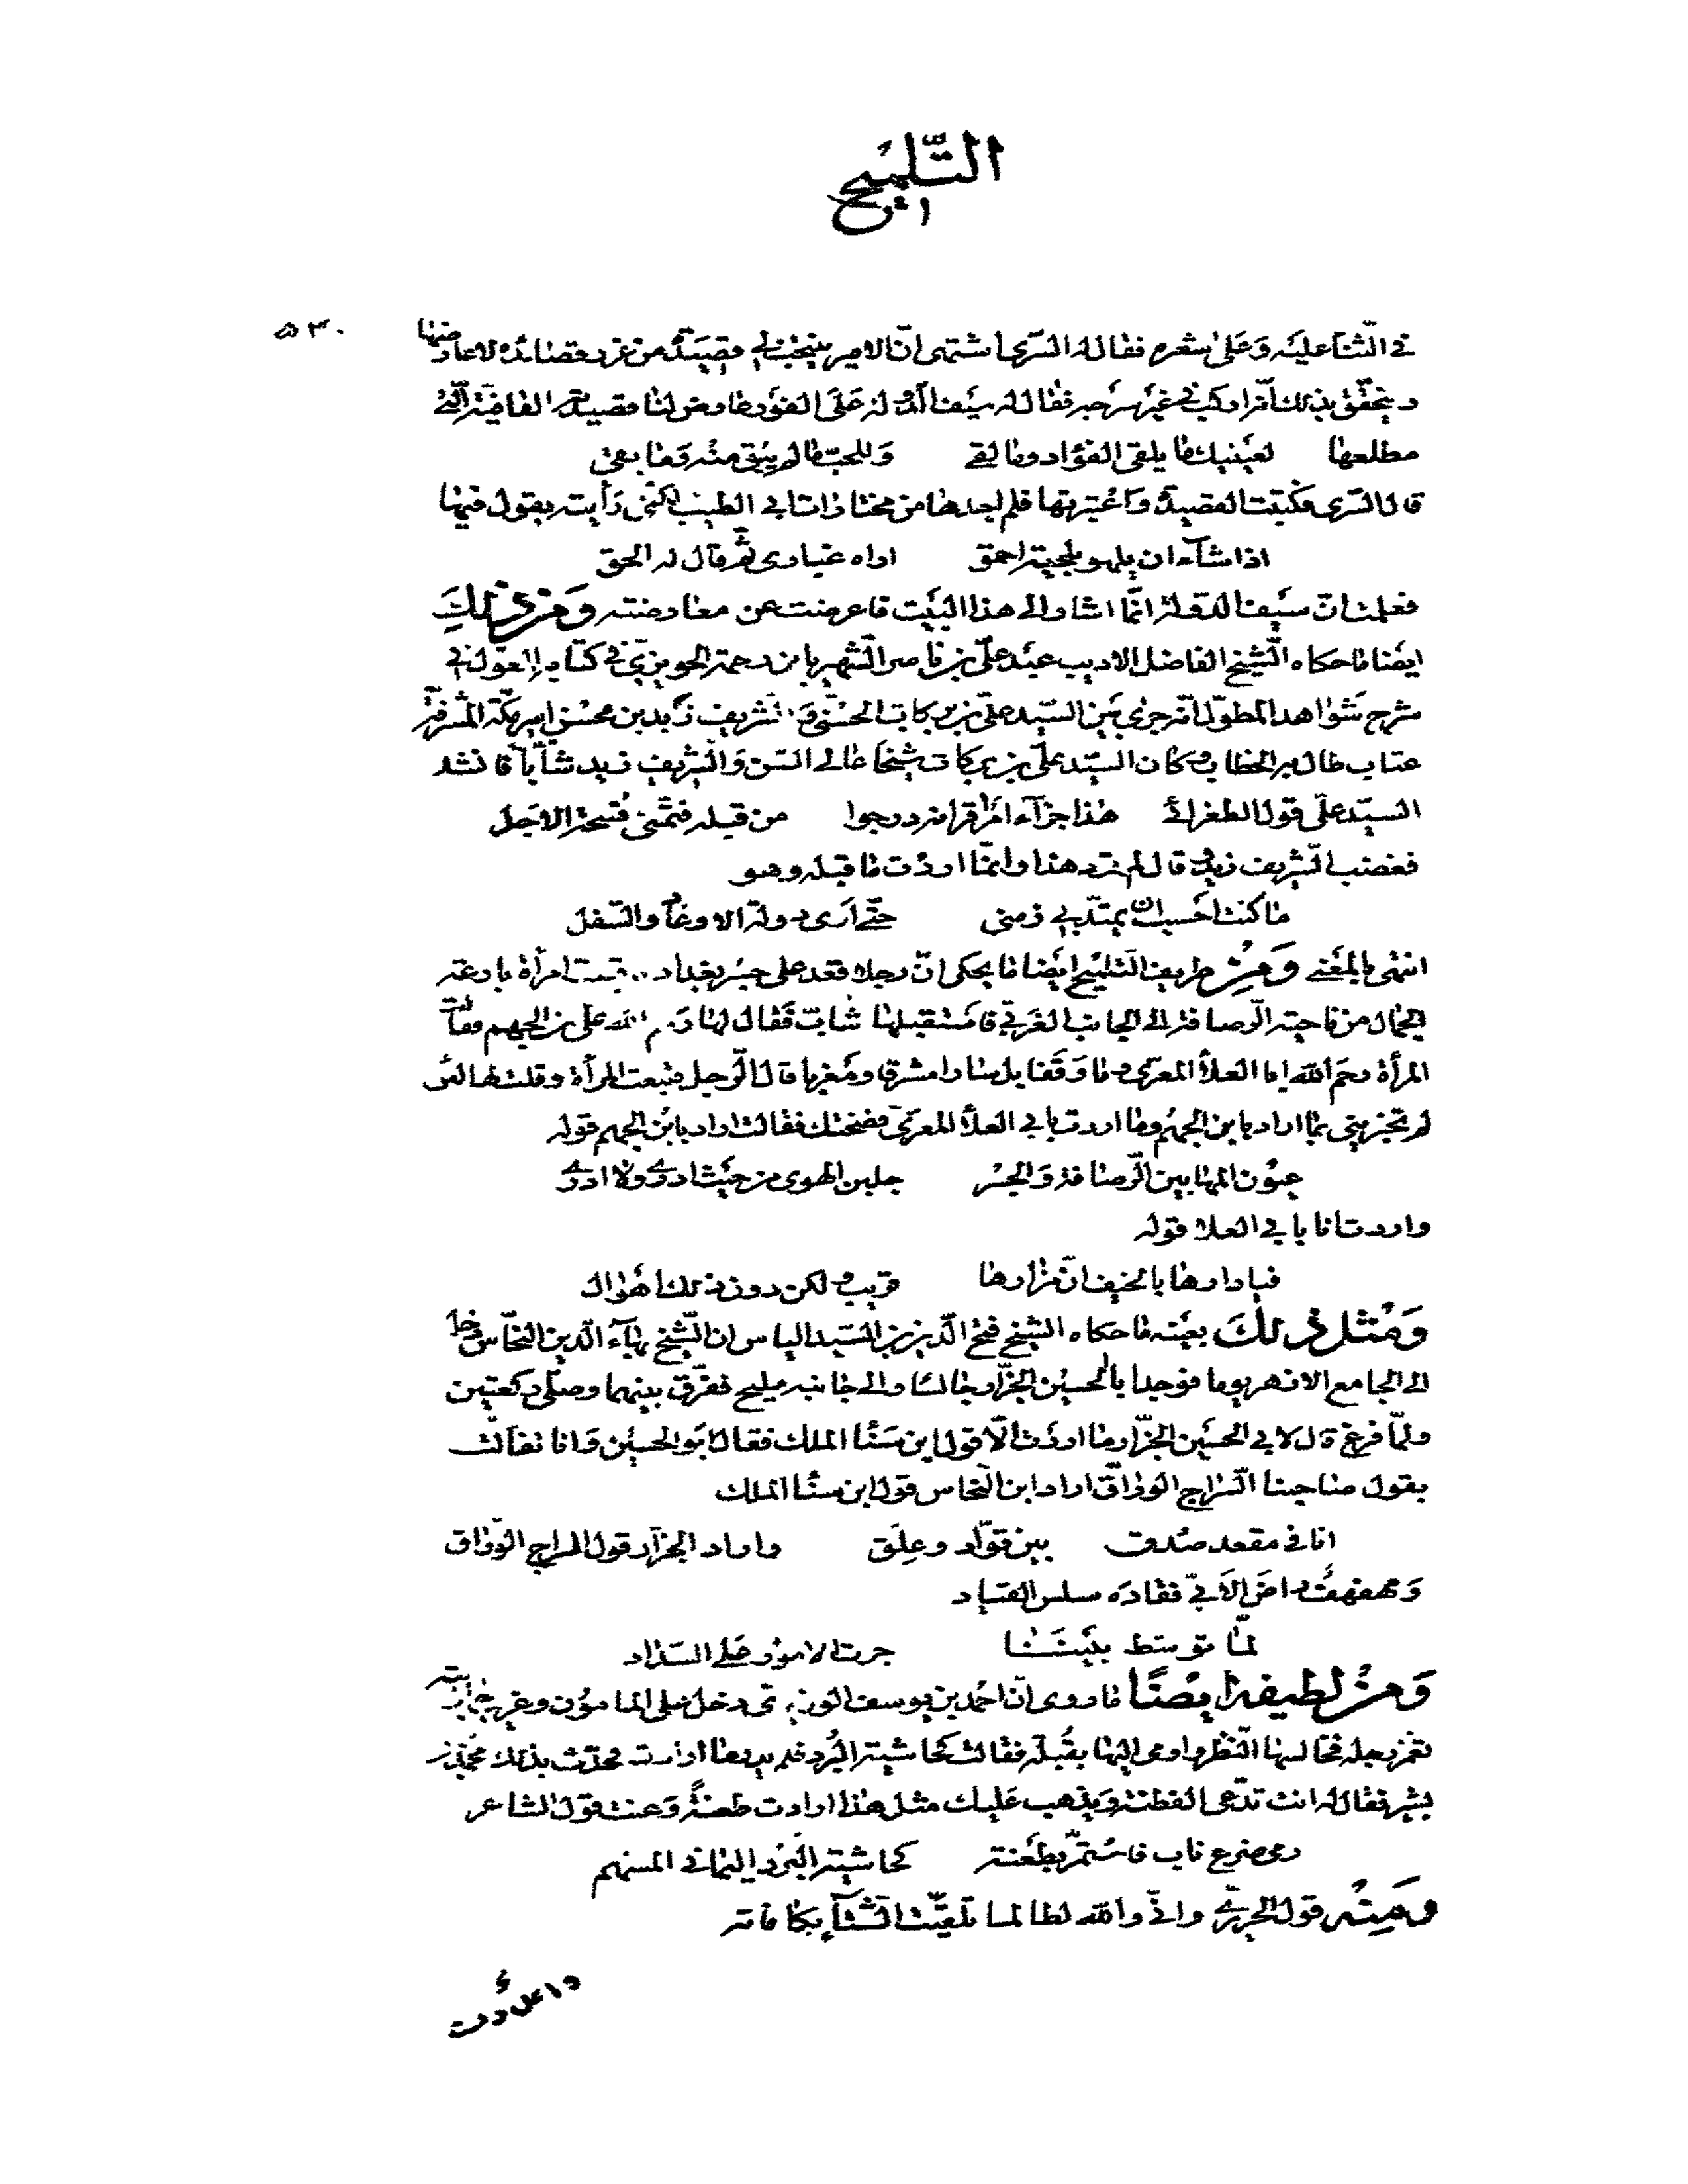 التّلميح
٥٣٠
في الثّنا عليه وَعَلىٰ شعره فقال له السّرى اشتهى انّ الامير ينتخب لي قصيَدةً من غرر قصائده لاعارضها
ويتحقّق بذلك انّه اركب في غير سَرجه فقال له سَيف الدّولة عَلَى الفَور عارض لنا قصيدته القافيّة الّتي
مطلعها لعَينيك مٰا يلقى الفؤاد ومٰا لقي وَللحبّ مٰا لم يبْق منّى وَمٰا بقي
قال السّرى فكتبت القصيدة وَاعْتبرتها فلم اجدها من مختارات ابي الطيب لكنّى رَأيته يقول فيها
اذا شآء ان يلهو بلحية احمق اراه غبارى ثمّ قال له الحق
فعلمت انّ سيَف الدّولة انّما اشار الى هذا البيَت فاعرضت عن معارضته وَمن ذلكَ
ايضَا مٰا حكاه الشّيخ الفاضل الاديب عبَد علىّ بن ناصر الشّهير بابن رحمة الحويزىّ في كتٰابه المعوّل في
شرح شوٰاهد المطوّل انّه جرىٰ بَين السيّد علىّ بن بركات الحسَنىّ وَالشريف زَيد بن محسن امير مكّة المشرّفة
عتاب طال به الخطاب وكان السيّد علىّ بن بركات شيخًا عٰالي السّن وَالشريف زيد شٰابّا فانشد
السيّد علىّ قول الطغرائي هٰذا جزآء امْرأ اقرانه درجوا من قبله فتمنّى فُسحة الاجل
فغضب الشّريف زيد وقال لم ترد هذا وانّما اردْت مٰا قبله وهو
مٰا كنت احَسب ان يمتدّ بي زمنى حتّى اَرى دولة الاوغاد والسّفل
انتهى بالمعَنى وَمِنْ ظريف التّلميح ايضَا مٰا يحكى انّ رجلا قعد على جسْر بغداد فمرّت امرأة بارعة
الجمال من ناحية الرّصافة الى الجانب الغَربي فاسَتقبلهٰا شٰابّ فَقال لهٰا رحم الله على بن الجهم فقالت
المرأة رحَم الله ابا العلآ المعرّى ومٰا وَقَفا بل سٰارا مشرقا ومَغربا قال الرّجل فتبعت المرأة وقلت لهٰا لئن
لم تخبَرينى بمٰا اراد بابن الجهْم ومٰا اردت بابي العلآ المعرىّ فضحتك فقالت اراد بابْن الجهم قوله
عيوُن المهٰا بين الرّصٰافة وَالجسْر جلبن الهوى من حيَث ادري ولا ادري
واردت انا بابي العلا قوله
فيا دارهٰا بالخيف انّ مزٰارهٰا قريب ولكن دون ذلك اهَوٰال
وَمْثل ذلكَ بعيَنه مٰا حكاه الشيخ فتح الدّين بن السَيد الياس ان الشّيخ بهٰآء الدّين النحّاس دخل
الى الجامع الازهر يوما فوجد ابا الحسيُن الجزّار جٰالسًا والى جٰانبه مليح ففرّق بينهما وصلّى ركعتين
ولمّا فرغ قال لابي الحسَين الجزّار مٰا اردْت الّا قول ابن سَنٰا الملك فقال ابوَ الحسيُن وَانا تفآلت
بقول صٰاحبنا السّراج الوَرّاق اراد ابن النّحاس قول ابن سنٰا الملك
انا في مقعد صْدق بين قوّاد وعِلَق واراد الجزّار قول السراج الورّاق
وَمهفهف راضَ الاَبيّ فقادَه سلس القيٰاد
لمّا توسّط بيَننَٰا جرت الامور عَلى السّدٰاد
وَمنْ لطيفه ايضًا مٰا روى انّ احمَد بن يوسف الوزير دخل على المامون وعريب جٰاريته
تغمز رجله فخالسهٰا النّظر واومى اليهٰا بقُبلة فقالت كحٰاشية البُرد فلم يدر مٰا ارادت فحدّث بذلك محمّد بن
بشير فقال له انت تدّعى الفطنة وَيذهب عَليك مثل هٰذا ارادت طعنةً وَعنت قول الشاعر
رمى ضرع ناب فاسْتمرّ بطَعنة كحاشية البُرد اليمٰاني المسهم
ومَنِه قول الحريري وانّي والله لطالمٰا تلقيّت الشّتآء بكافاته
واعددت